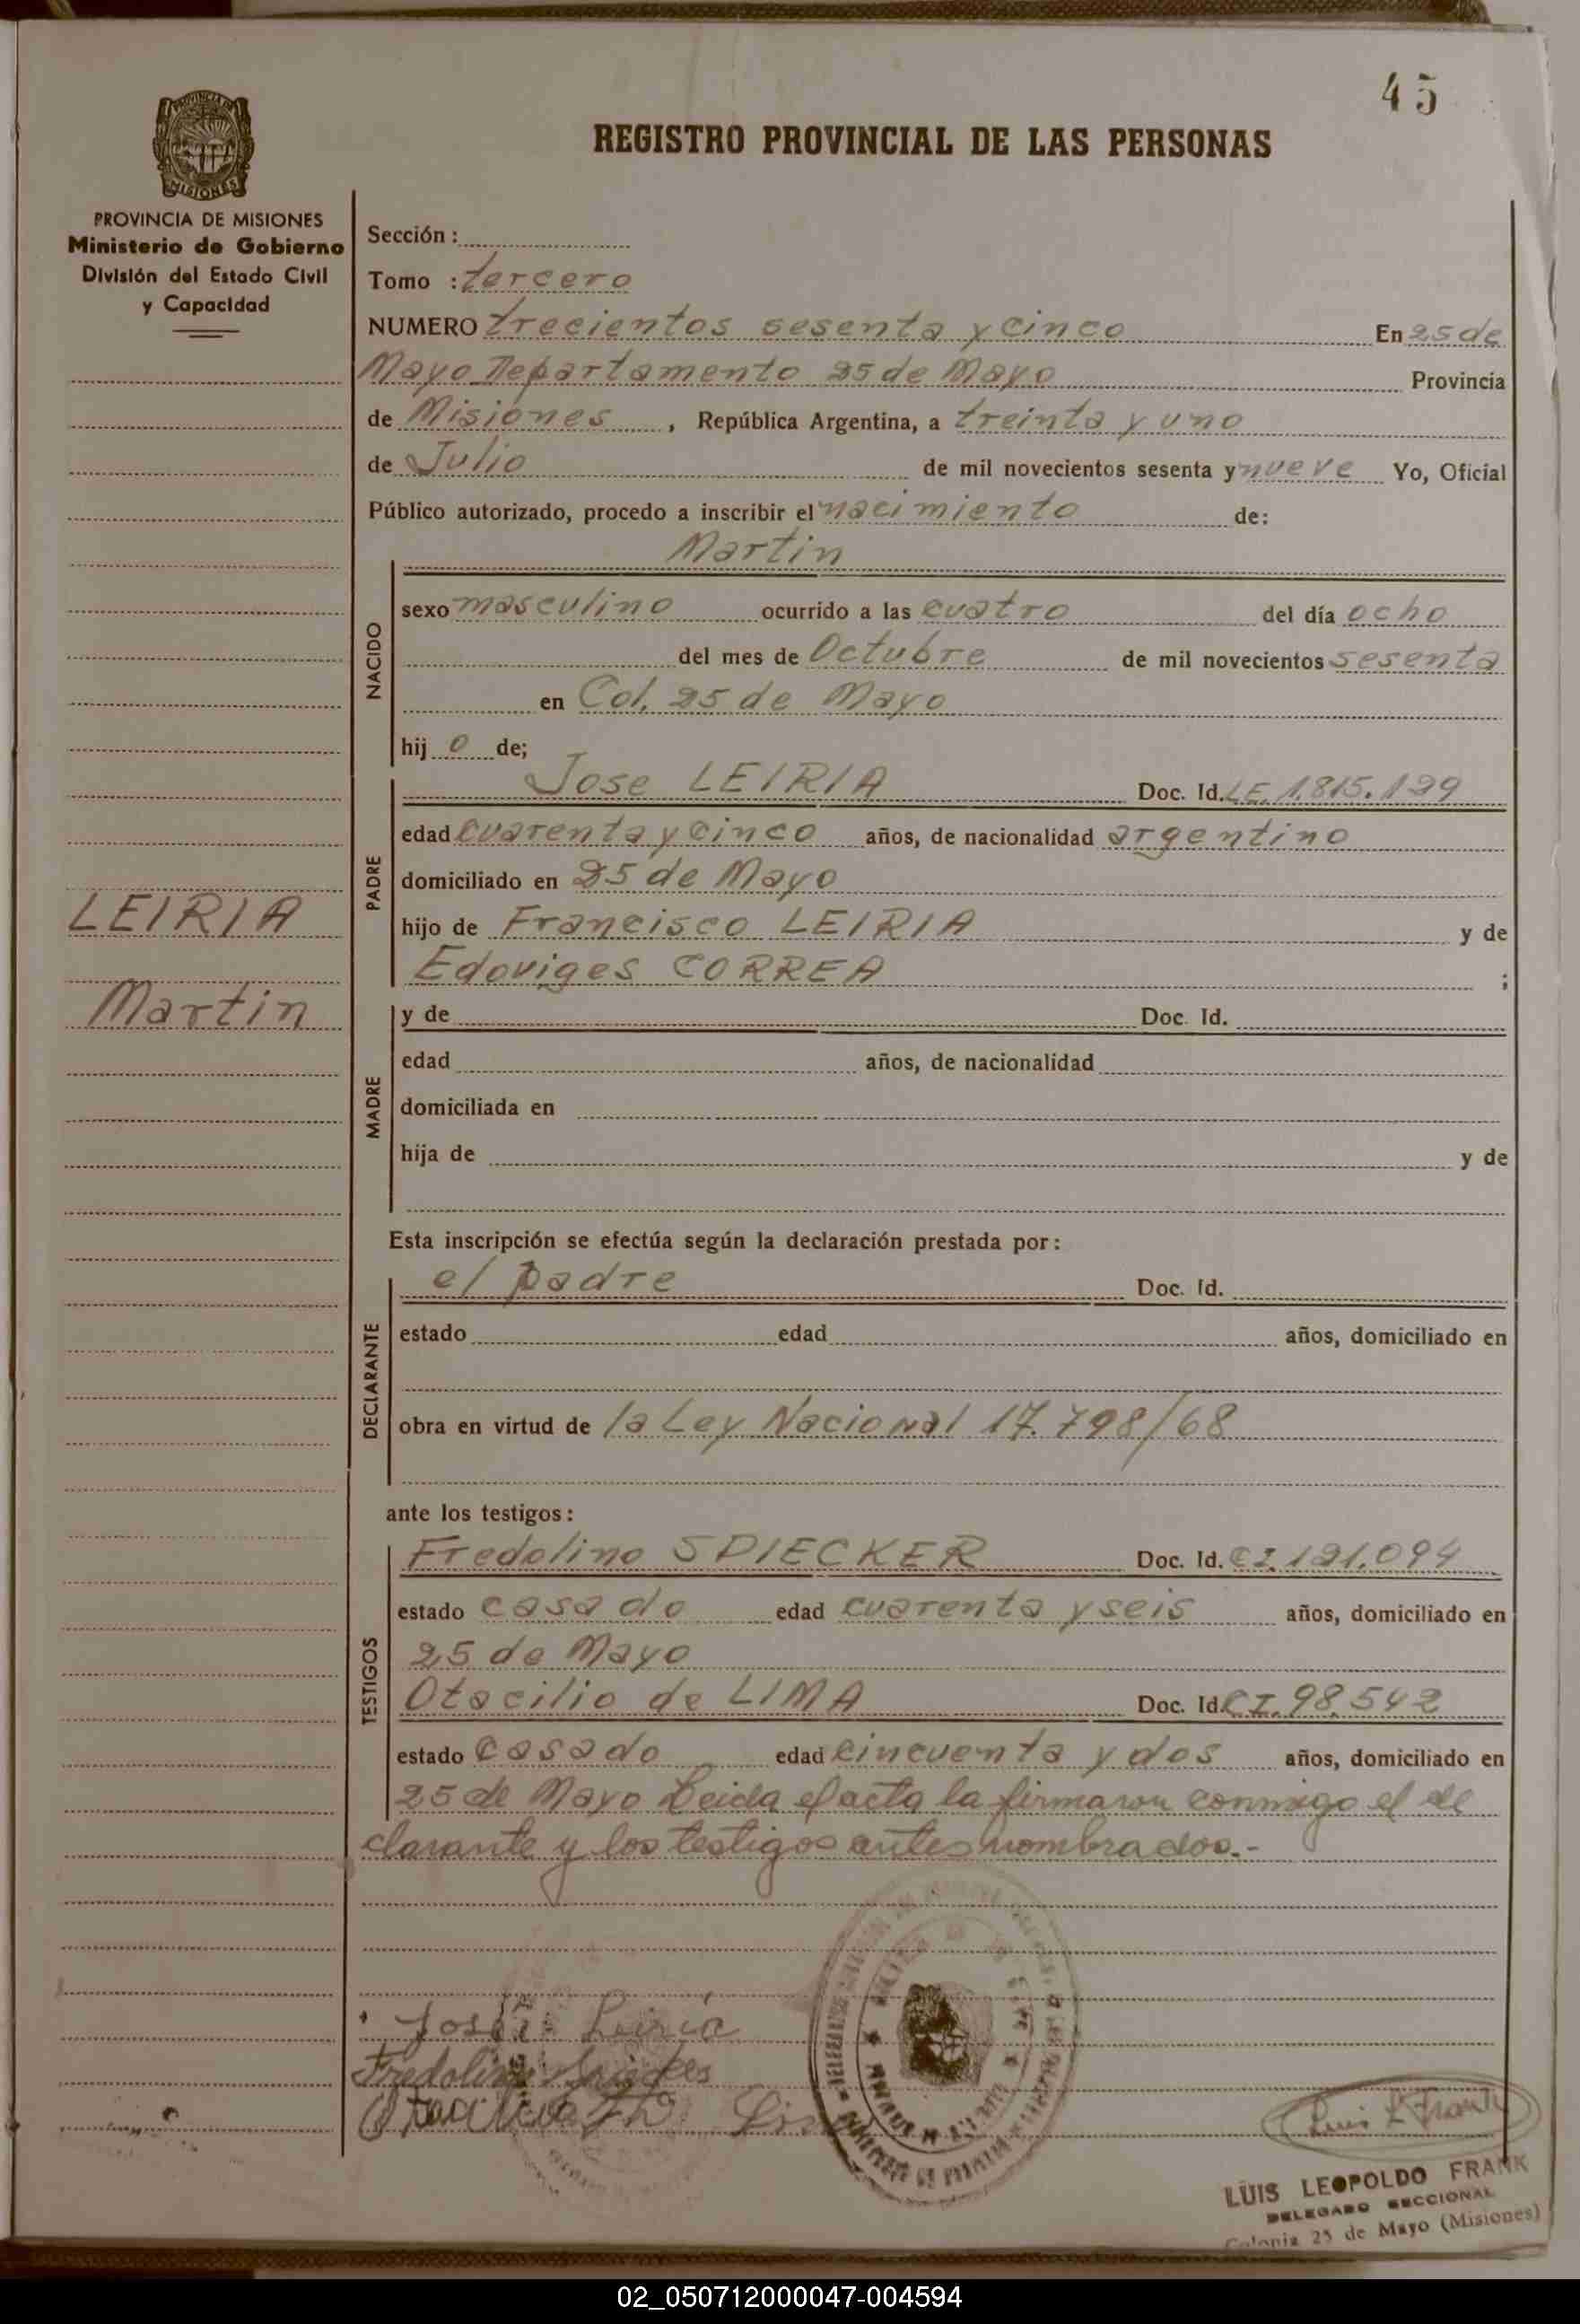 45
REGISTRO PROVINCIAL DE LAS PERSONAS
PROVINCIA DE MISIONES
Ministerio de Gobierno
División del Estado Civil
y Capacidad
Sección :
Tomo : tercero
NUMERO trecientos sesenta y cinco En 25 de
Mayo Departamento 25 de Mayo Provincia
de Misiones , República Argentina, a treinta y uno
de Julio de mil novecientos sesenta y nueve Yo, Oficial
Público autorizado, procedo a inscribir el nacimiento de:
Martin
NACIDO
sexo masculino ocurrido a las cuatro del día ocho
del mes de Octubre de mil novecientos sesenta
en Col. 25 de Mayo
hij o de;
Jose LEIRIA Doc. Id. LE. 1.815.129
PADRE
edad cuarenta y cinco años, de nacionalidad argentino
domiciliado en 25 de Mayo
LEIRIA
hijo de Francisco LEIRIA y de
Edoviges CORREA ;
Martin
y de Doc. Id.
MADRE
edad años, de nacionalidad
domiciliada en
hija de y de
Esta inscripción se efectúa según la declaración prestada por:
el padre Doc. Id.
DECLARANTE
estado edad años, domiciliado en
obra en virtud de la Ley Nacional 17.798/68
ante los testigos:
Fredolino SPIECKER Doc. Id. CI. 121.094
TESTIGOS
estado casado edad cuarenta y seis años, domiciliado en
25 de Mayo
Otacilio de LIMA Doc. Id. CI. 98.542
estado casado edad cincuenta y dos años, domiciliado en
25 de Mayo Leida el acta la firmaron conmigo el de
clarante y los testigos antes nombrados.-
José Leiria
Fredolino
Luis L Frank
LUIS LEOPOLDO FRANK
DELEGADO SECCIONAL
Colonia 25 de Mayo (Misiones)
02_050712000047-004594